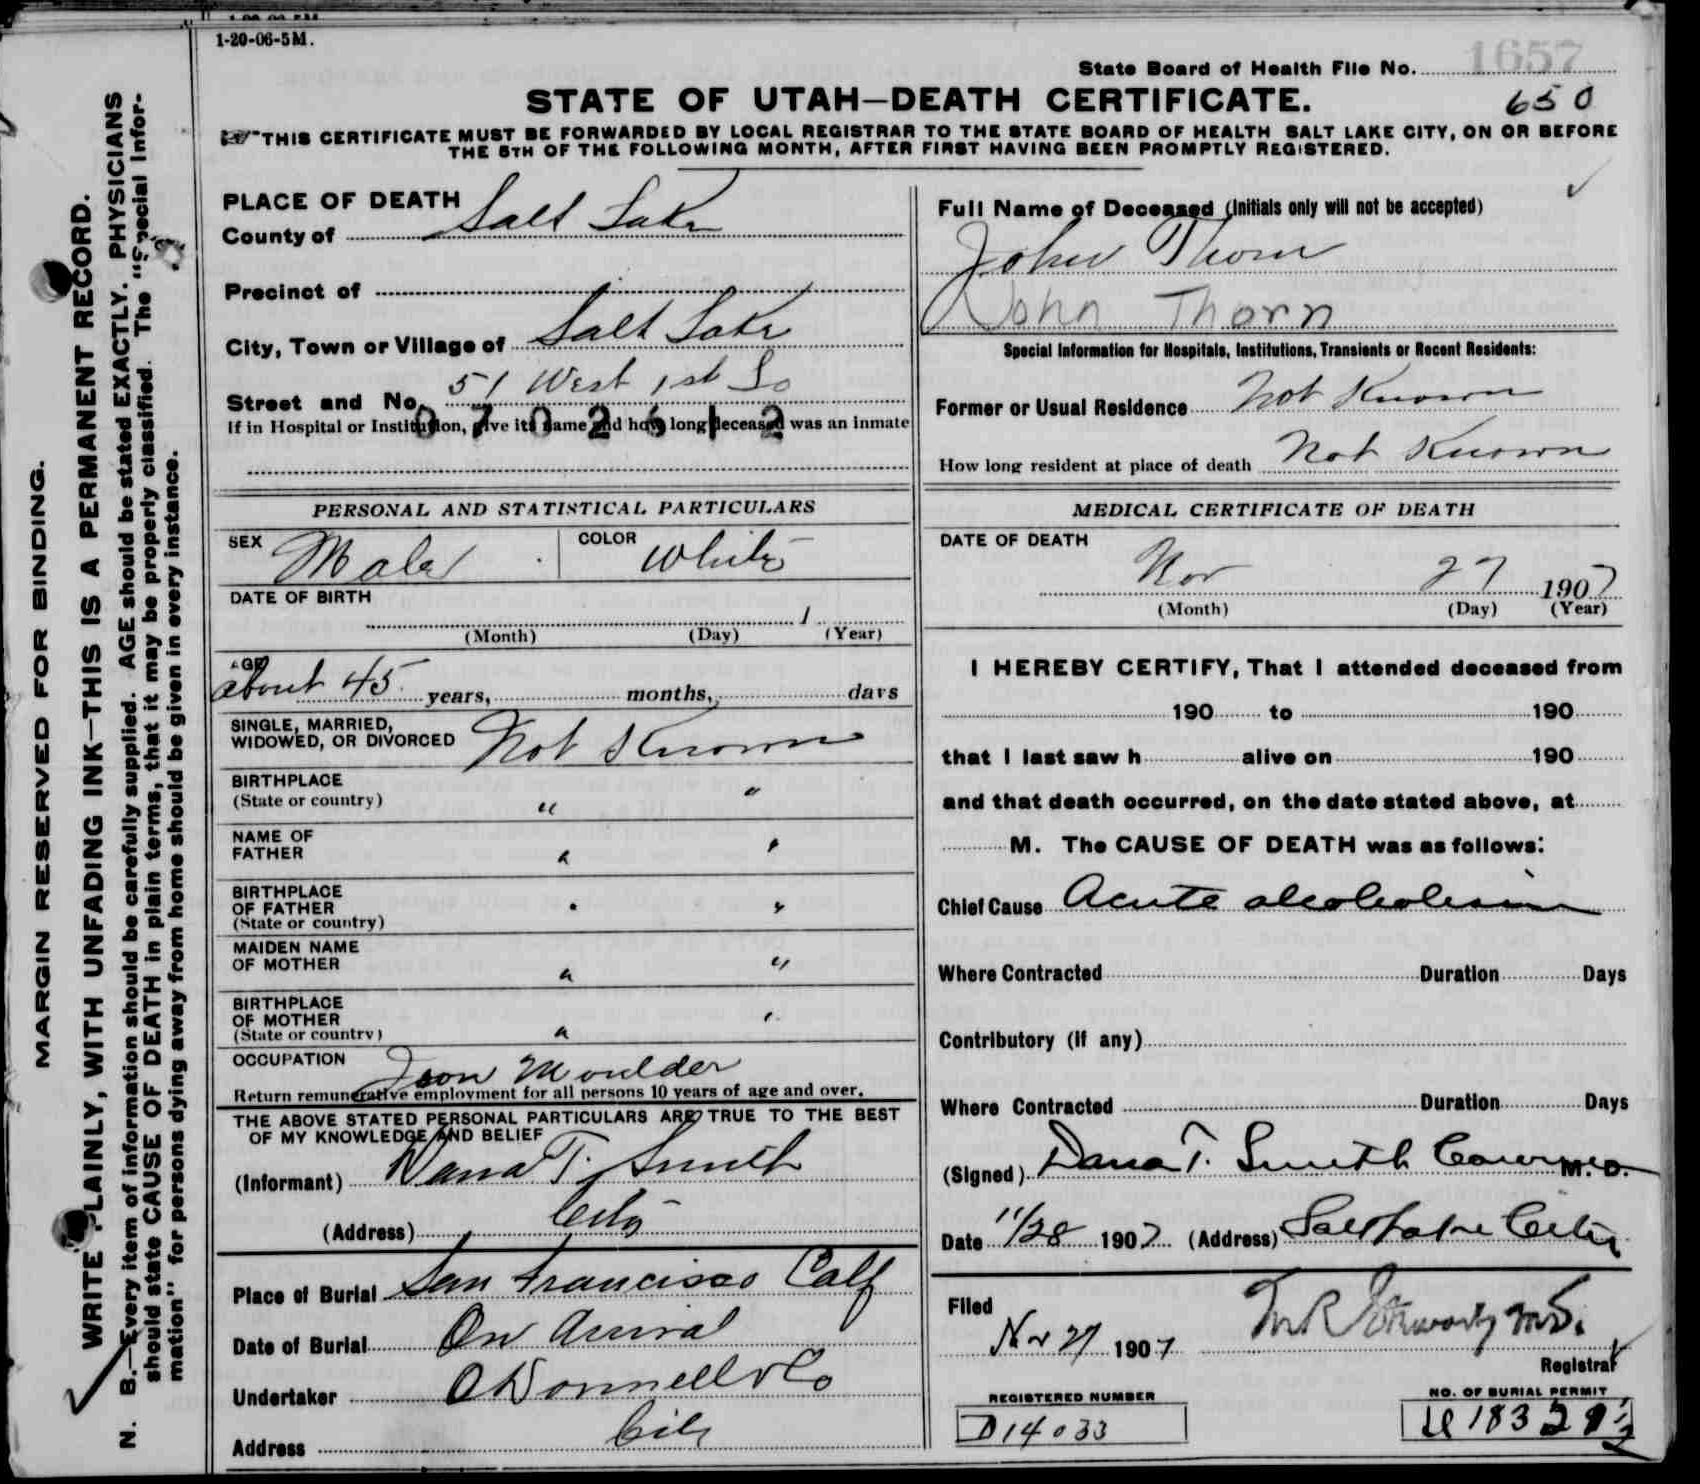 1-20-06-5M.
State Board of Health File No. 1657
STATE OF UTAH—DEATH CERTIFICATE. 650
THIS CERTIFICATE MUST BE FORWARDED BY LOCAL REGISTRAR TO THE STATE BOARD OF HEALTH SALT LAKE CITY, ON OR BEFORE
THE 5TH OF THE FOLLOWING MONTH, AFTER FIRST HAVING BEEN PROMPTLY REGISTERED.
MARGIN RESERVED FOR BINDING.
WRITE PLAINLY, WITH UNFADING INK—THIS IS A PERMANENT RECORD.
N. B.—Every item of information should be carefully supplied. AGE should be stated EXACTLY. PHYSICIANS
should state CAUSE OF DEATH in plain terms, that it may be properly classified. The "Special Infor-
mation" for persons dying away from home should be given in every instance.
PLACE OF DEATH
County of Salt Lake
Precinct of
City, Town or Village of Salt Lake
Street and No. 51 West 1st So
0702612
If in Hospital or Institution, give its name and how long deceased was an inmate
PERSONAL AND STATISTICAL PARTICULARS
SEX Male COLOR White
DATE OF BIRTH
1
(Month) (Day) (Year)
AGE
about 45 years, months, days
SINGLE, MARRIED,
WIDOWED, OR DIVORCED Not Known
BIRTHPLACE
(State or country) " "
NAME OF
FATHER " "
BIRTHPLACE
OF FATHER " "
(State or country)
MAIDEN NAME
OF MOTHER " "
BIRTHPLACE
OF MOTHER
(State or country) " "
OCCUPATION Iron Moulder
Return remunerative employment for all persons 10 years of age and over.
THE ABOVE STATED PERSONAL PARTICULARS ARE TRUE TO THE BEST
OF MY KNOWLEDGE AND BELIEF
(Informant) Dana T. Smith
(Address) City
Place of Burial San Francisco Calf
Date of Burial On Arrival
Undertaker O'Donnell & Co
Address City
Full Name of Deceased (Initials only will not be accepted)
John Thorn
John Thorn
Special Information for Hospitals, Institutions, Transients or Recent Residents:
Former or Usual Residence Not Known
How long resident at place of death Not Known
MEDICAL CERTIFICATE OF DEATH
DATE OF DEATH
Nov 27 1907
(Month) (Day) (Year)
I HEREBY CERTIFY, That I attended deceased from
190 to 190
that I last saw h alive on 190
and that death occurred, on the date stated above, at
M. The CAUSE OF DEATH was as follows:
Chief Cause Acute alcoholism
Where Contracted Duration Days
Contributory (If any)
Where Contracted Duration Days
(Signed) Dana T. Smith Coroner M. D.
Date 11/28 1907 (Address) Salt Lake City
Filed
Nov 27 1907
Registrar
REGISTERED NUMBER
D14033
NO. OF BURIAL PERMIT